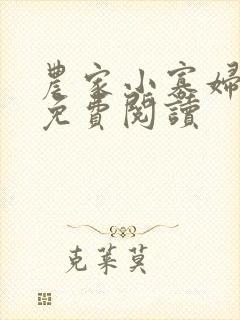 農家小寡婦
免費閱讀
克萊莫